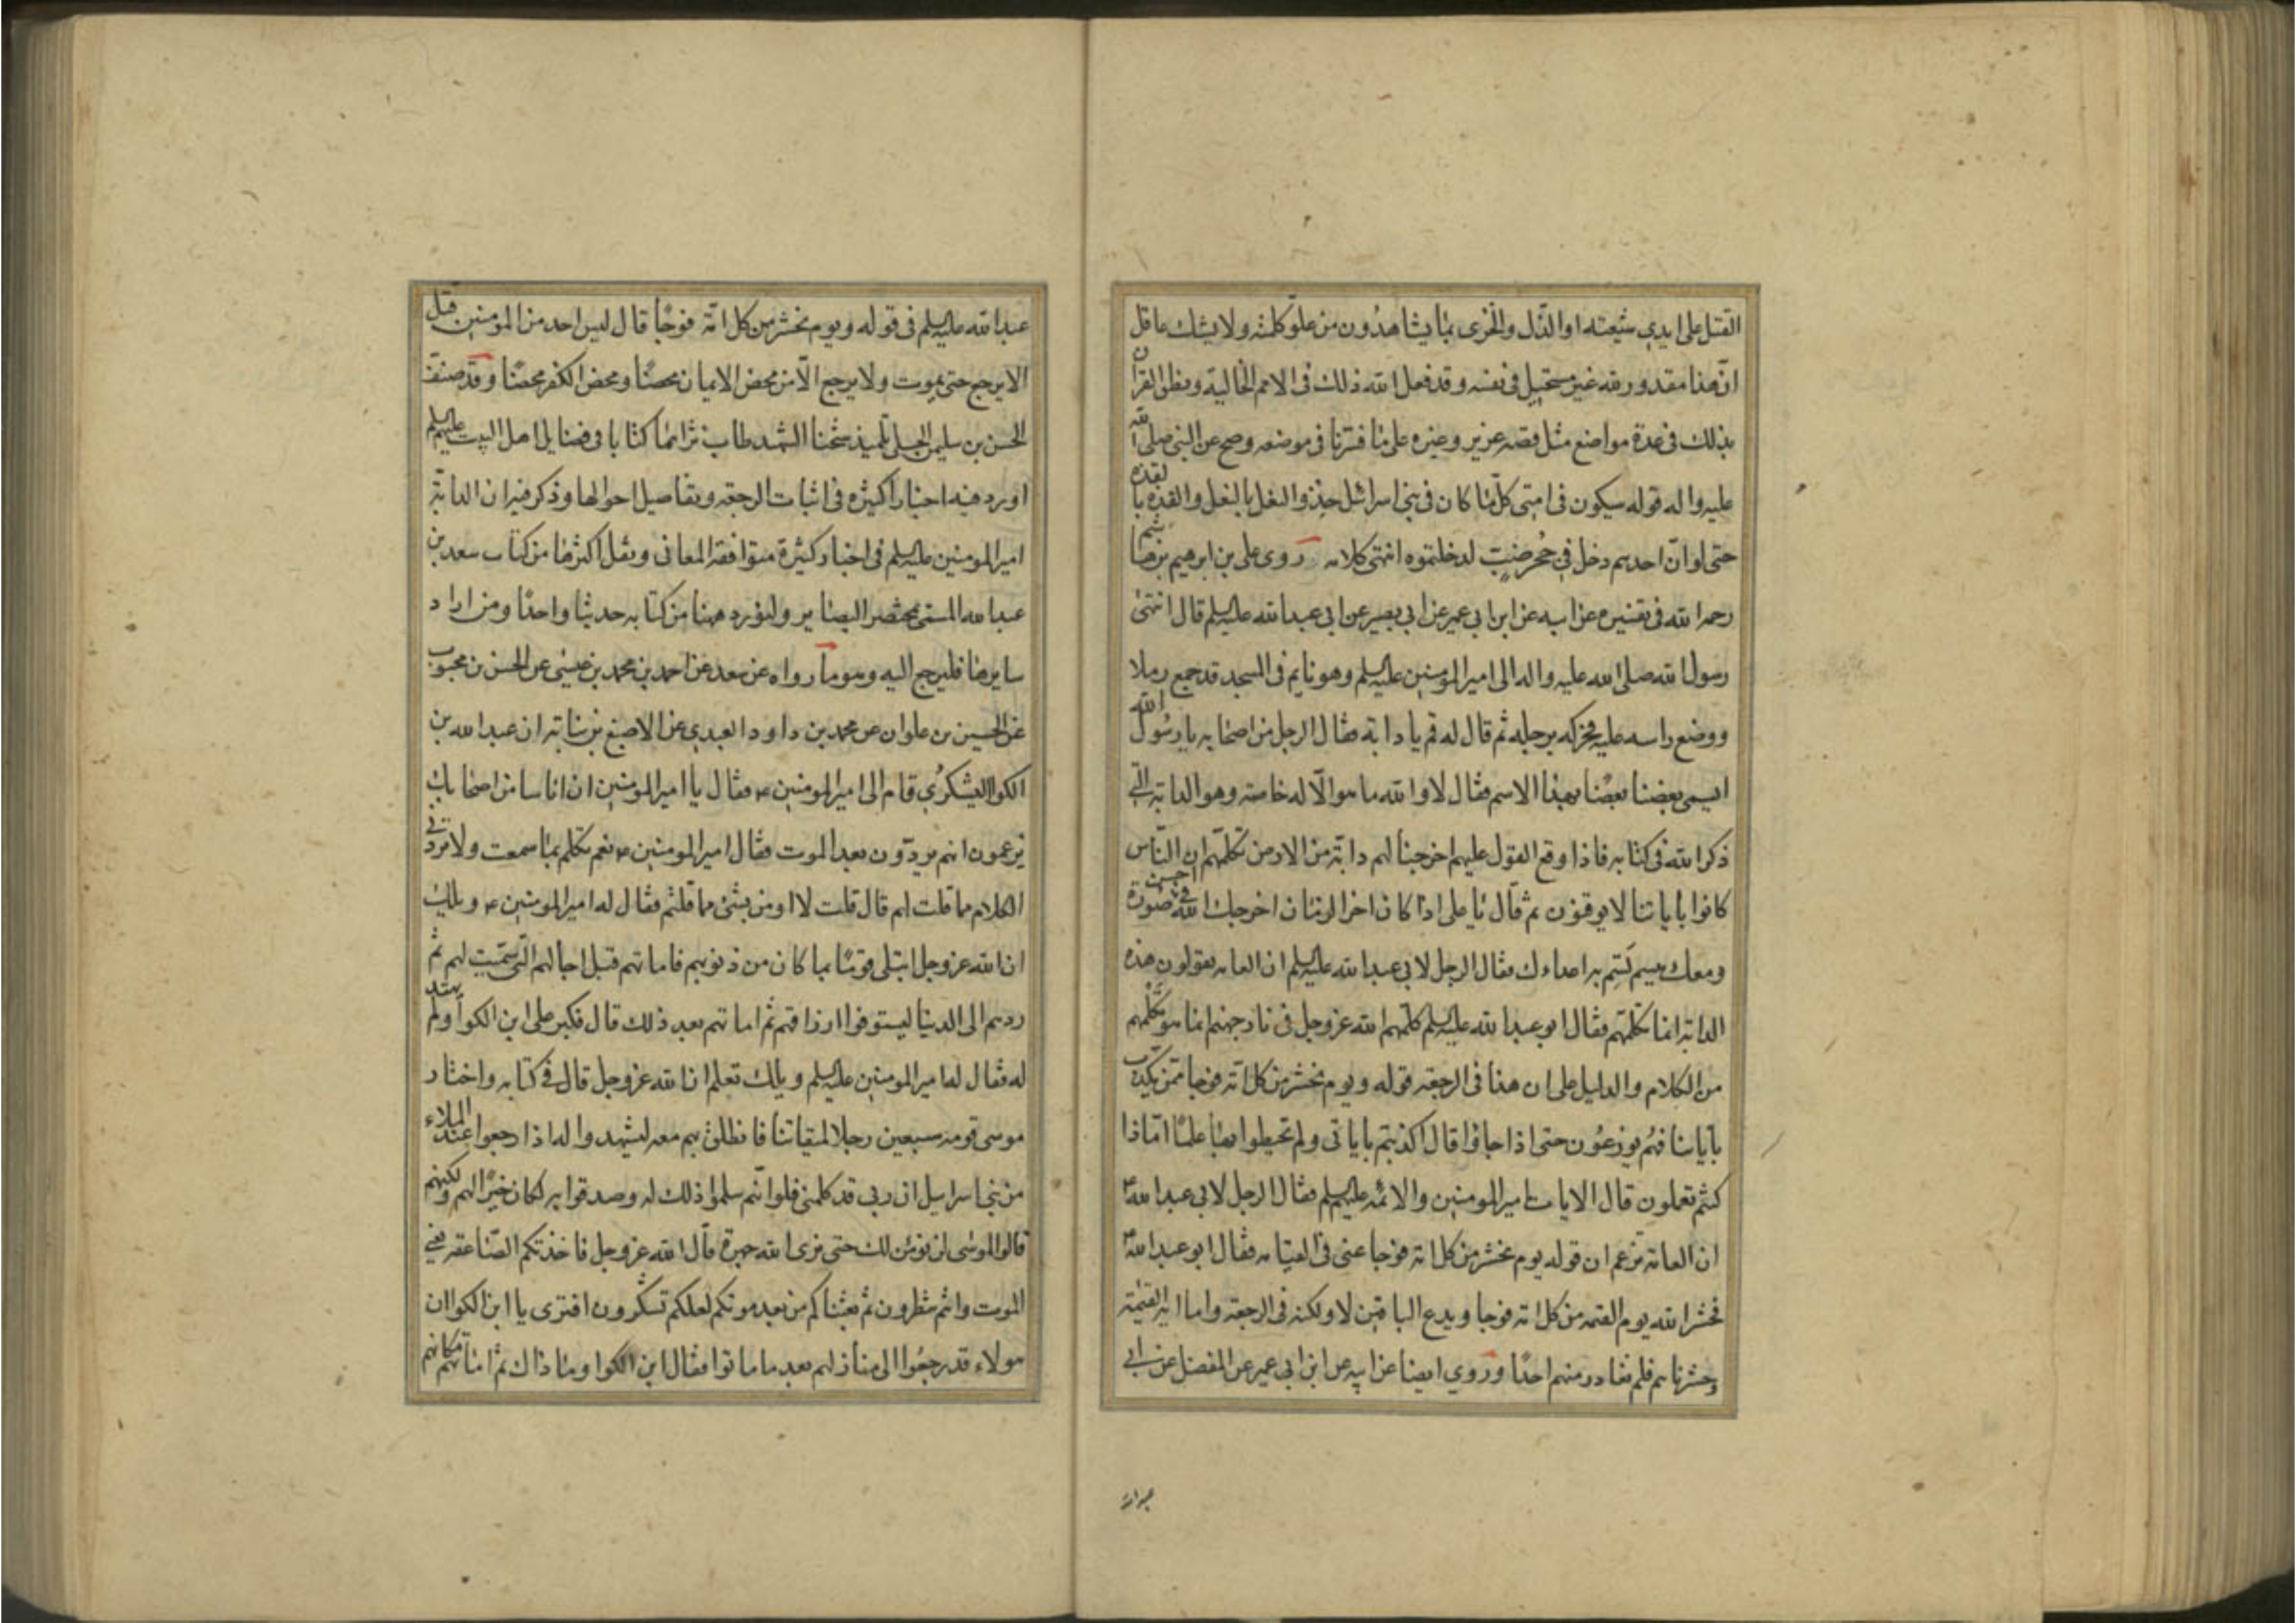 القتل على ايدي شيعته او الذل والخزى بما يشاهدون من علو كلمته ولا يشك عاقل
ان هذا مقدور لله غير مستحيل فى نفسه وقد فعل الله ذلك فى الامم الخالية ونطق القران
بذلك فى عدة مواضع مثل قصه عزير وغيره على ما فسرنا فى موضعه وصح عن النبى صلى الله
عليه واله قوله سيكون فى امتى كلما كان فى بنى اسرائيل حذو النعل بالنعل والقذه بالقذه
حتى لو ان احدهم دخل فى جحر ضب لدخلتموه انتهى كلامه روى على بن ابرهيم بن هاشم
رحمه الله فى تفسيره عن ابيه عن ابن ابى عمير عن ابي بصير عن ابى عبد الله عليه السلم قال انتهى
رسول الله صلى الله عليه واله الى امير المومنين عليه السلم وهو نايم فى المسجد قد جمع رملا
ووضع راسه عليه فحركه برجله ثم قال له قم يا دابة فقال الرجل من اصحابه يا رسول الله
ايسمى بعضنا بعضا بهذا الاسم فقال لا والله ما هو الا له خاصة وهو الدابة التى
ذكر الله فى كتابه فاذا وقع القول عليهم اخرجنا لهم دابة من الارض تكلمهم ان الناس
كانوا باياتنا لا يوقنون ثم قال يا على اذا كان اخر الزمان اخرجك الله فى احسن صورة
ومعك ميسم تسم به اعداءك فقال الرجل لابى عبد الله عليه السلم ان العامه يقولون هذه
الدابة انما تكلمهم فقال ابو عبد الله عليه السلم كلمهم الله عز وجل فى نار جهنم انما هو تكلمهم
من الكلام والدليل على ان هذا فى الرجعة قوله ويوم نحشر من كل امة فوجا ممن يكذب
باياتنا فهم يوزعون حتى اذا جاؤا قال اكذبتم باياتى ولم تحيطوا بها علما اماذا
كنتم تعملون قال الايات امير المومنين والائمه عليهم السلم فقال الرجل لابى عبد الله ع
ان العامة تزعم ان قوله يوم نحشر من كل امة فوجا عنى فى القيامه فقال ابو عبد الله ع
فحشر الله يوم القيمه من كل امة فوجا ويدع الباقين لا ولكنه فى الرجعة واما اية القيمة
وحشرناهم فلم نغادر منهم احدا وروي ايضا عن ابيه عن ابن ابى عمير عن المفضل عن ابى
عبد الله
عبد الله عليه السلم فى قوله ويوم نحشر من كل امة فوجا قال ليس احد من المومنين قتل
الا يرجع حتى يموت ولا يرجع الا من محض الايمان محضا ومحض الكفر محضا وقد صنف
الحسن بن سليمن الحلى تلميذ شيخنا الشهيد طاب ثراهما كتابا فى فضايل اهل البيت عليهم السلم
اورد فيه اخبارا كثيره فى اثبات الرجعة وتفاصيل احوالها وذكر فيه ان الدابة
امير المومنين عليه السلم فى اخبار كثيرة متوافقة المعانى ونقل اكثرها من كتاب سعد بن
عبد الله المسمى بمختصر البصاير ولنورد ههنا من كتابه حديثا واحدا ومن اراد
سايرها فليرجع اليه وهو ما رواه عن سعد عن احمد بن محمد بن عيسى عن الحسن بن محبوب
عن الحسين بن علوان عن محمد بن داود العبدي عن الاصبغ بن نباتة ان عبد الله بن
الكوا اليشكرُي قام الى امير المومنين ع فقال يا امير المومنين ان اناسا من اصحابك
يزعمون انهم يردون بعد الموت فقال امير المومنين ع نعم تكلم بما سمعت ولا تزد فى
الكلام مما قلت لهم قال قلت لا اومن بشئ مما قلتم فقال له امير المومنين ع ويلك
ان الله عز وجل ابتلى قوما بما كان من ذنوبهم فاماتهم قبل اجالهم التى سميت لهم ثم
ردهم الى الدنيا ليستوفوا ارزاقهم ثم اماتهم بعد ذلك قال فكبر على ابن الكوا ولم يهتد
له فقال له امير المومنين عليه السلم ويلك تعلم ان الله عز وجل قال فى كتابه واختار
موسى قومه سبعين رجلا لميقاتنا فانطلق بهم معه ليشهدوا له اذا رجعوا عند الملاء
من بنى اسرايل ان ربى قد كلمنى فلو انهم سلموا ذلك له وصدقوا به لكان خيرا لهم ولكنهم
قالوا لموسى لن نؤمن لك حتى نرى الله جهرة قال الله عز وجل فاخذتكم الصاعقه يعنى
الموت وانتم تنظرون ثم بعثناكم من بعد موتكم لعلكم تشكرون افترى يا ابن الكوا ان
هولاء قد رجعوا الى منازلهم بعد ما ماتوا فقال ابن الكوا وما ذاك ثم اماتهم مكانهم